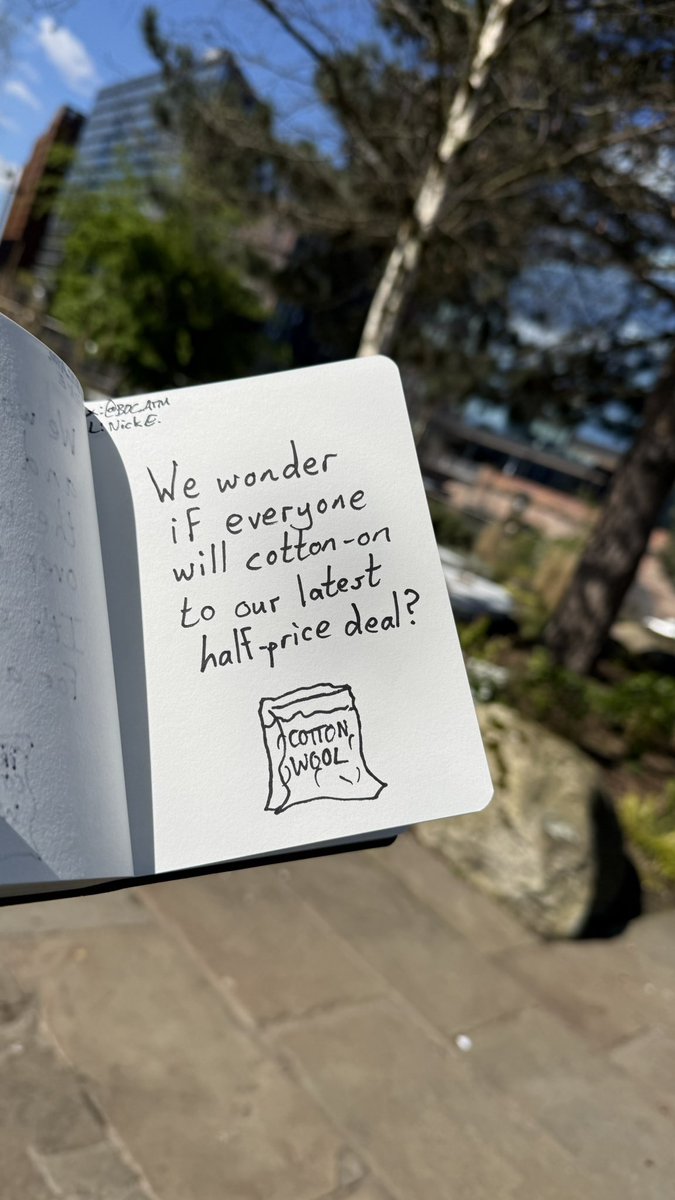 X: @BOC_ATM
L: Nick E.
We wonder
if everyone
will cotton-on
to our latest
half-price deal?
COTTON
WOOL